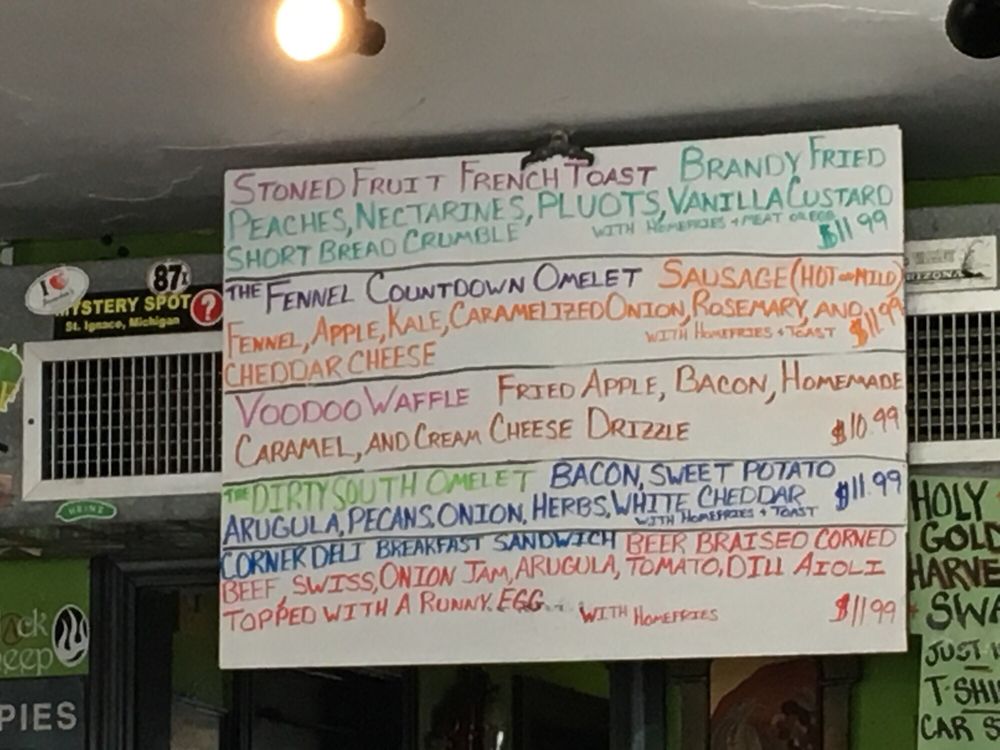 STONED FRUIT FRENCH TOAST BRANDY FRIED
PEACHES, NECTARINES, PLUOTS, VANILLA CUSTARD
SHORT BREAD CRUMBLE WITH HOMEFRIES + MEAT OR EGG $11.99
THE FENNEL COUNTDOWN OMELET SAUSAGE (HOT OR MILD)
FENNEL, APPLE, KALE, CARAMELIZED ONION, ROSEMARY, AND
CHEDDAR CHEESE WITH HOMEFRIES + TOAST $11.99
VOODOO WAFFLE FRIED APPLE, BACON, HOMEMADE
CARAMEL, AND CREAM CHEESE DRIZZLE $10.99
THE DIRTY SOUTH OMELET BACON, SWEET POTATO
ARUGULA, PECANS, ONION, HERBS, WHITE CHEDDAR $11.99
WITH HOMEFRIES + TOAST
CORNER DELI BREAKFAST SANDWICH BEER BRAISED CORNED
BEEF, SWISS, ONION JAM, ARUGULA, TOMATO, DILL AIOLI
TOPPED WITH A RUNNY EGG... WITH HOMEFRIES $11.99
I
87
MYSTERY SPOT ?
St. Ignace, Michigan
HEINZ
ARIZONA
HOLY
GOLD
HARVE
SWA
JUST
T-SHI
CAR S
ck
eep
PIES